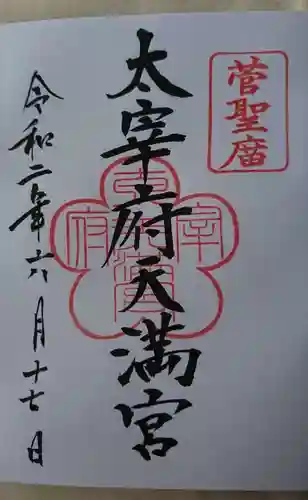 菅聖庿
太宰府天満宮
令和二年六月十七日